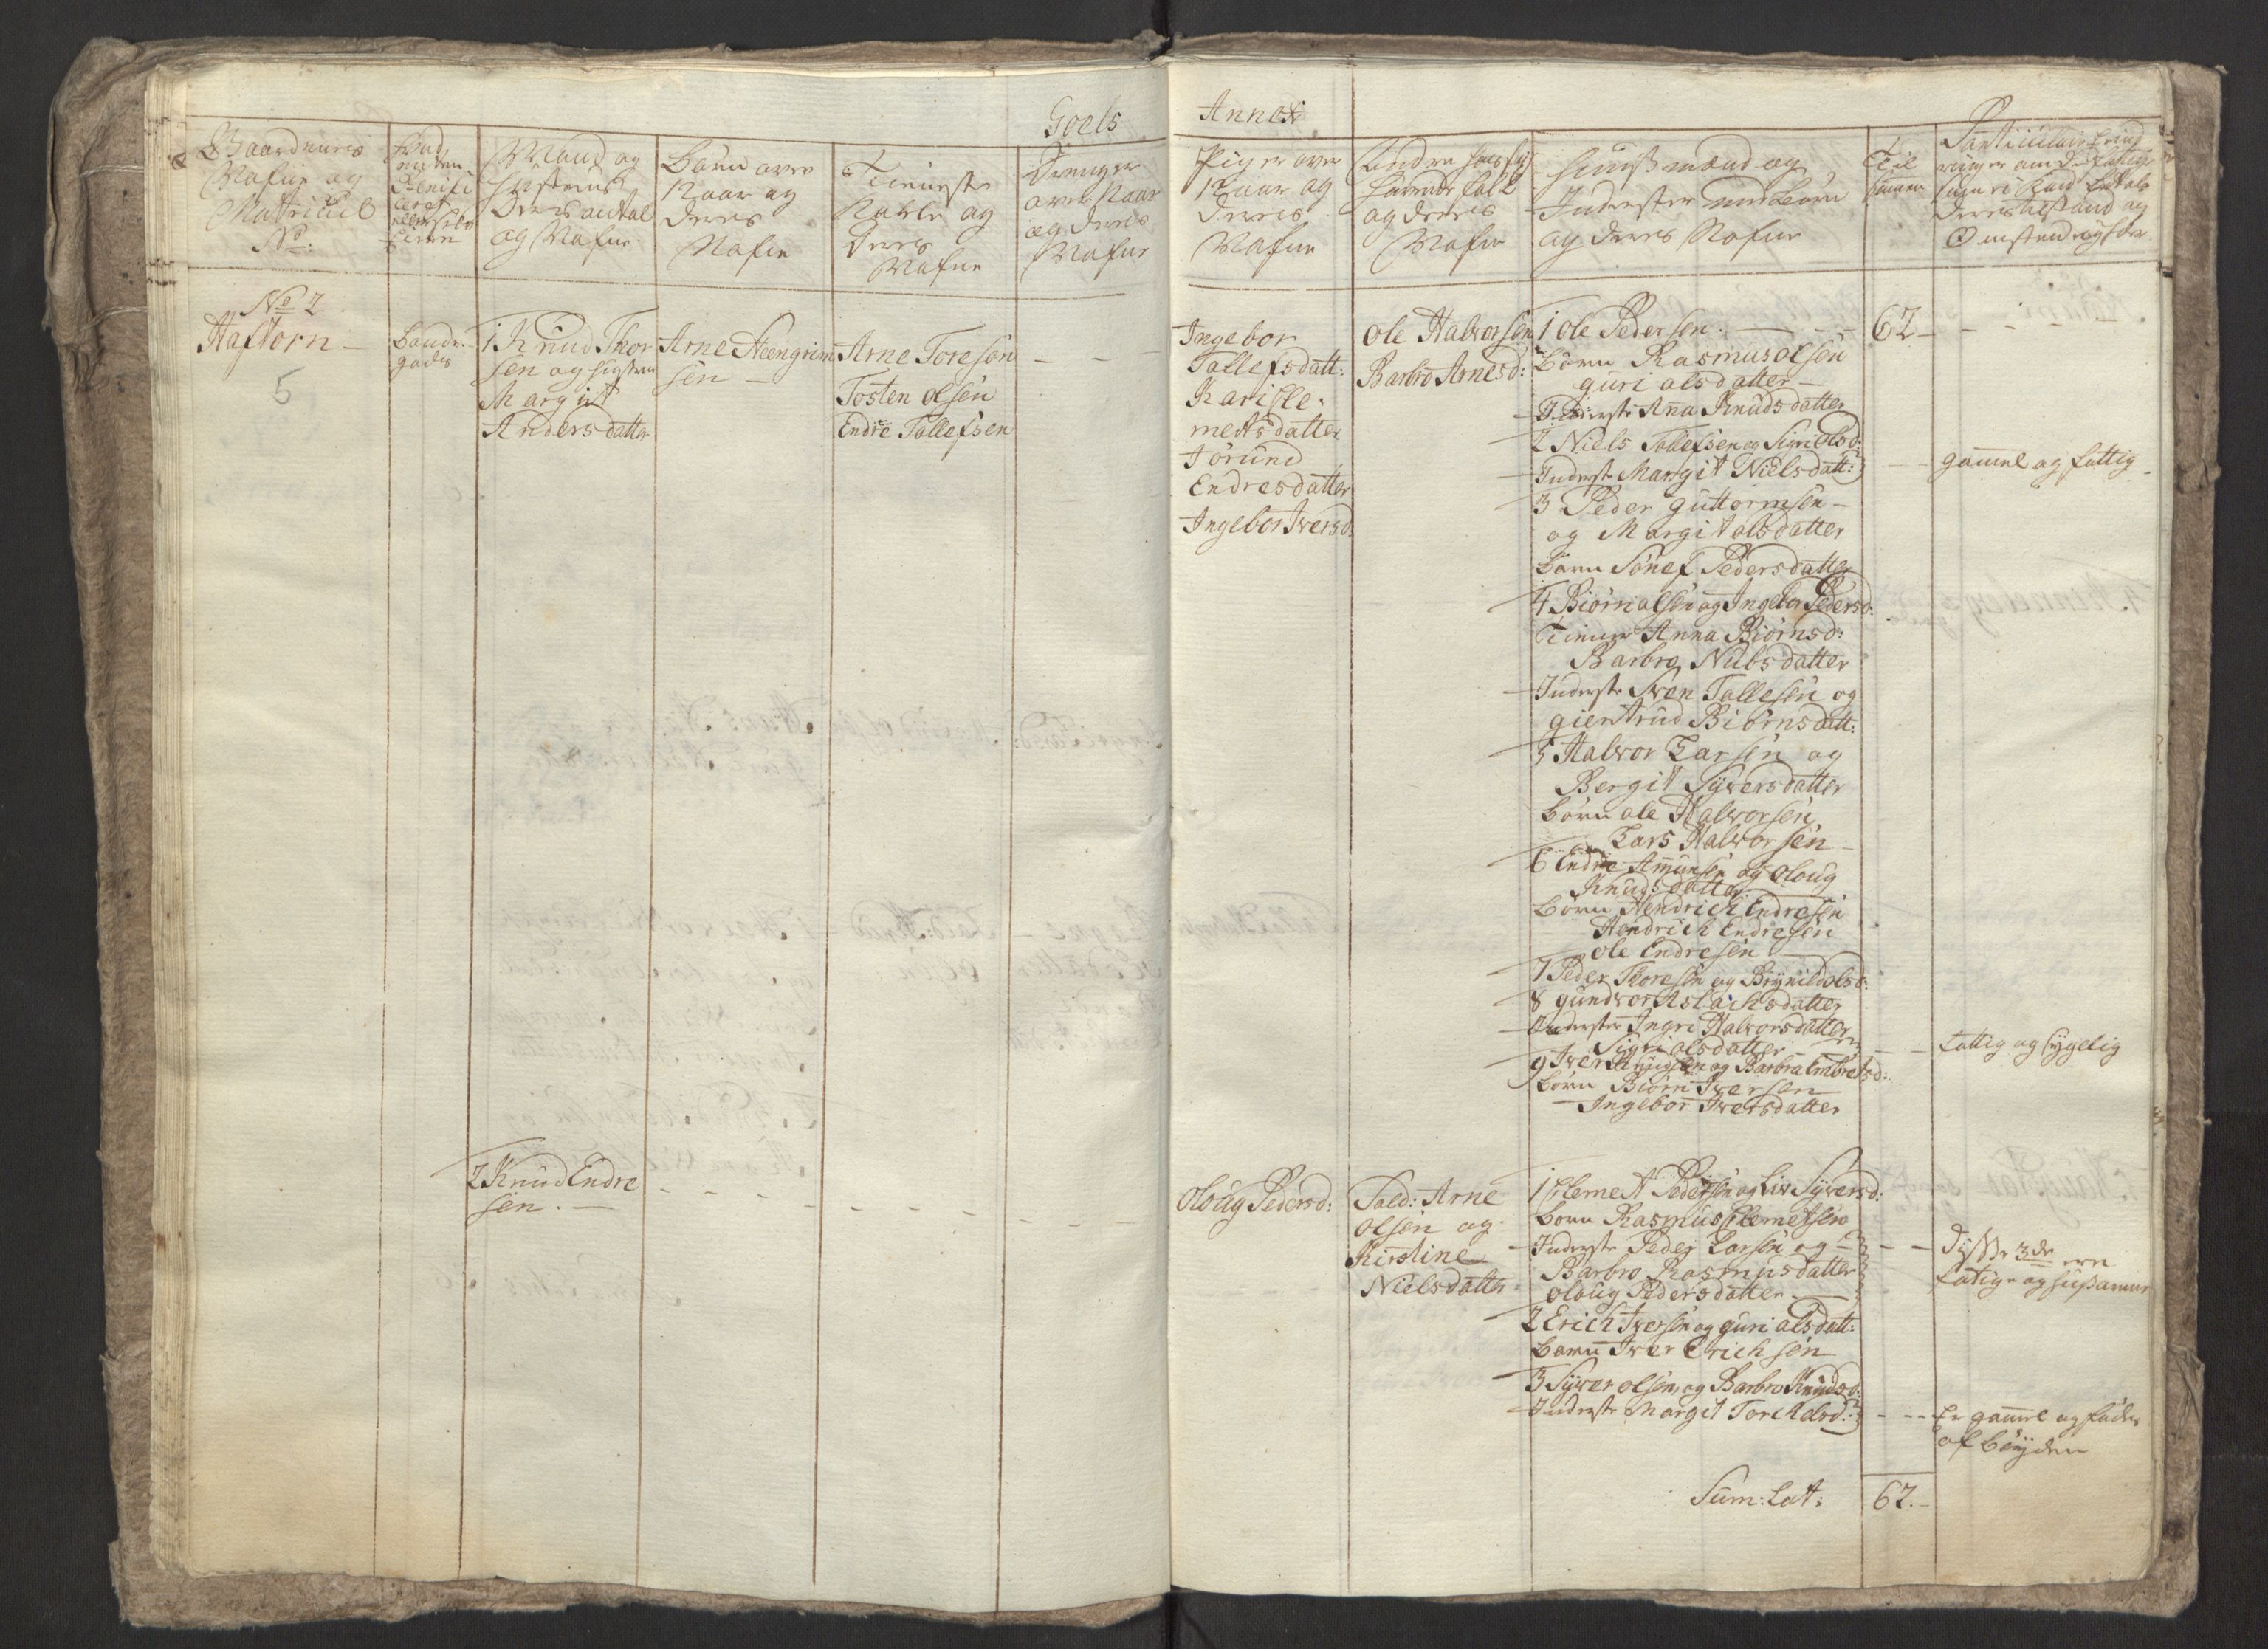 Goels Annex
Gaardenes
Nafne og
Matricul
No:
Mand og
Hustrue
Deres antal
og Nafne
Børn over
12 aar og
deres
Nafne
Tieneste
Karle og
deres
Nafne
Drenger
over 12 aar
og deres
Nafne
Piger over
12 aar og
deres
Nafne
Andre
og deres
Nafne
Huusmænd og
Inderster med børn
og deres Nafne
Til
sammen
deres tilstand og
No 2
Haftorn
5
Bonde
gods
1 Knud Thor
sen og hustrue
Margit
Andersdatter
Arne Steengrim
sen
Arne Toresen
Tosten olsen
Endre Tollefsen
Ingebor
Tollefsdatt:
Kari Cle-
metsdatter
Jörund
Endresdatter
Ingebor Iversd:
Ole Halvorsen
Barbro Arnesd:
1 Ole Pedersen
børn Rasmus olsen
guri olsdatter
Inderste Anna Knudsdatter
2 Niels Tollefsen og Sigri olsd:
Inderste Margit Nielsdatt:
3 Peder guttormsen
og Margit olsdatter
barn Sönef Pedersdatter
4 Biörn olsen og Ingebor Pedersd:
Tiener Anna Biörnsd:
Barbro Nubsdatter
Inderste Sven Tollesen og
giertrud Biörnsdatt:
5 Halvor Larsen og
Bergit Syversdatter
börn ole Halvorsen
Lars Halvorsen
6 Endre Amunsen og oloug
Knudsdatter
börn Hendrich Endresen
Hendrich Endresen
ole Endresen
7 Peder Thoresen og Brynild olsd:
8 gundvor Aslachsdatter
Inderster Ingri Halvorsdatter
Sigri olsdatter
9 Iver Knudsen og Barbra Embretsd:
börn Biörn Iversen
Ingebor Iversdatter
62
gammel og fattig
fattig og sygelig
2 Knud Endre
sen
oloug Pedersd:
Sold: Arne
olsen og
Kirstine
Nielsdatter
1 Clemet Pedersen og Liv Syversd:
barn Rasmus Clemetsen
Inderste Peder Larsen og
Barbro Rasmusdatter
oloug Pedersdatter
2 Erich Iversen og guri olsdatt:
barn Iver Erichsen
3 Syver olsen og Barbro Knudsd:
Inderste Margit Torchelsd:
disse 3de ere
fatige og husarme
Er gammel og födes
af bøyden
Sum: Lat: 62